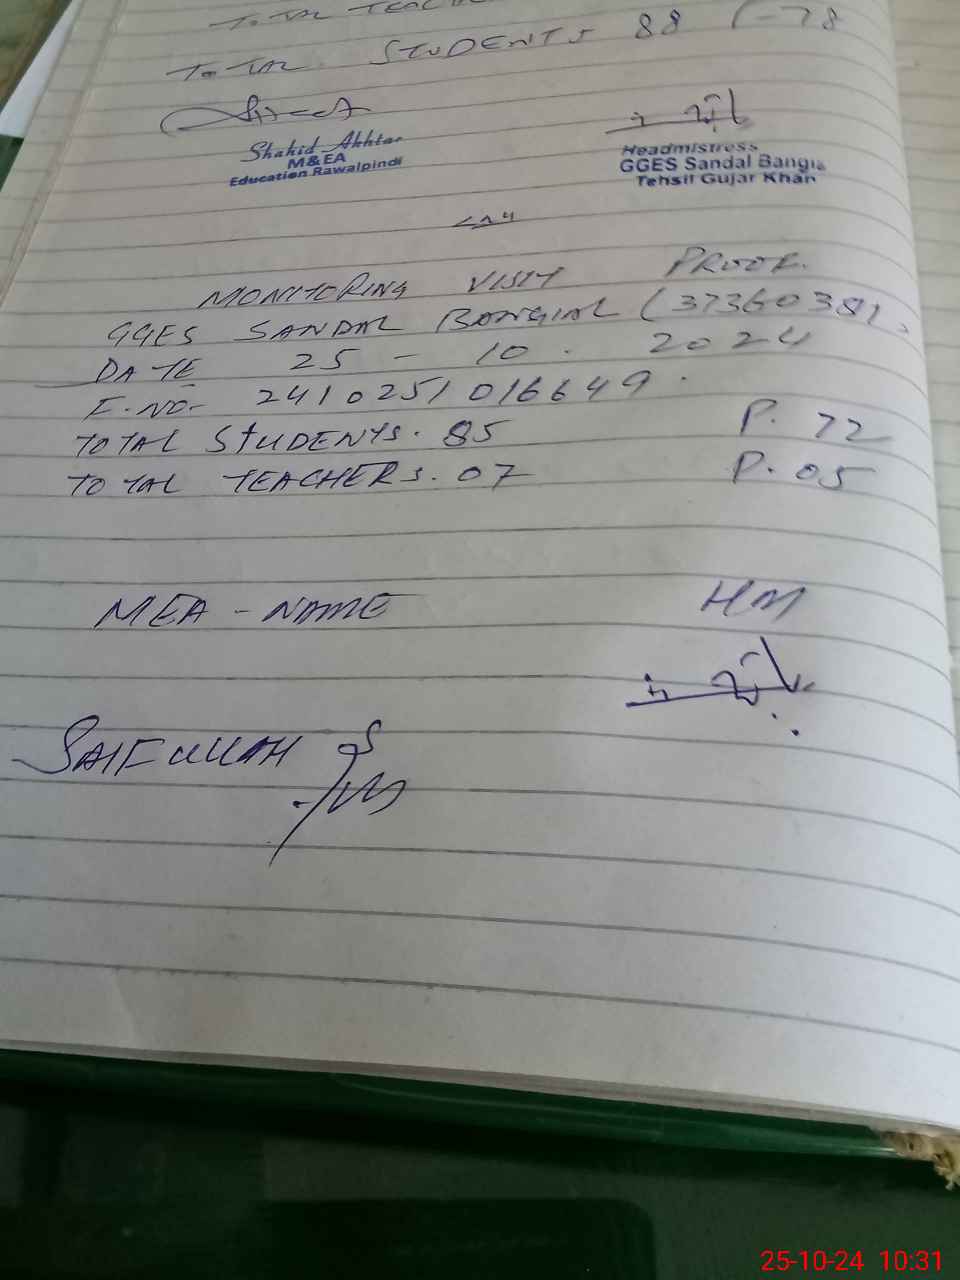 TOTAL TEACHE
TOTAL STUDENTS 88 P-78
Shahid Akhtar
M&EA
Education Rawalpindi
Headmistress
GGES Sandal Bangial
Tehsil Gujar Khan
MONITORING VISIT PROOF.
GGES SANDAL BANGIAL (37360389)
DATE 25 - 10 . 2024
F.NO- 2410251016649.
TOTAL STUDENTS. 85 P. 72
TOTAL TEACHERS. 07 P. 05
MEA - NAME HM
SAIFULLAH
25-10-24 10:31